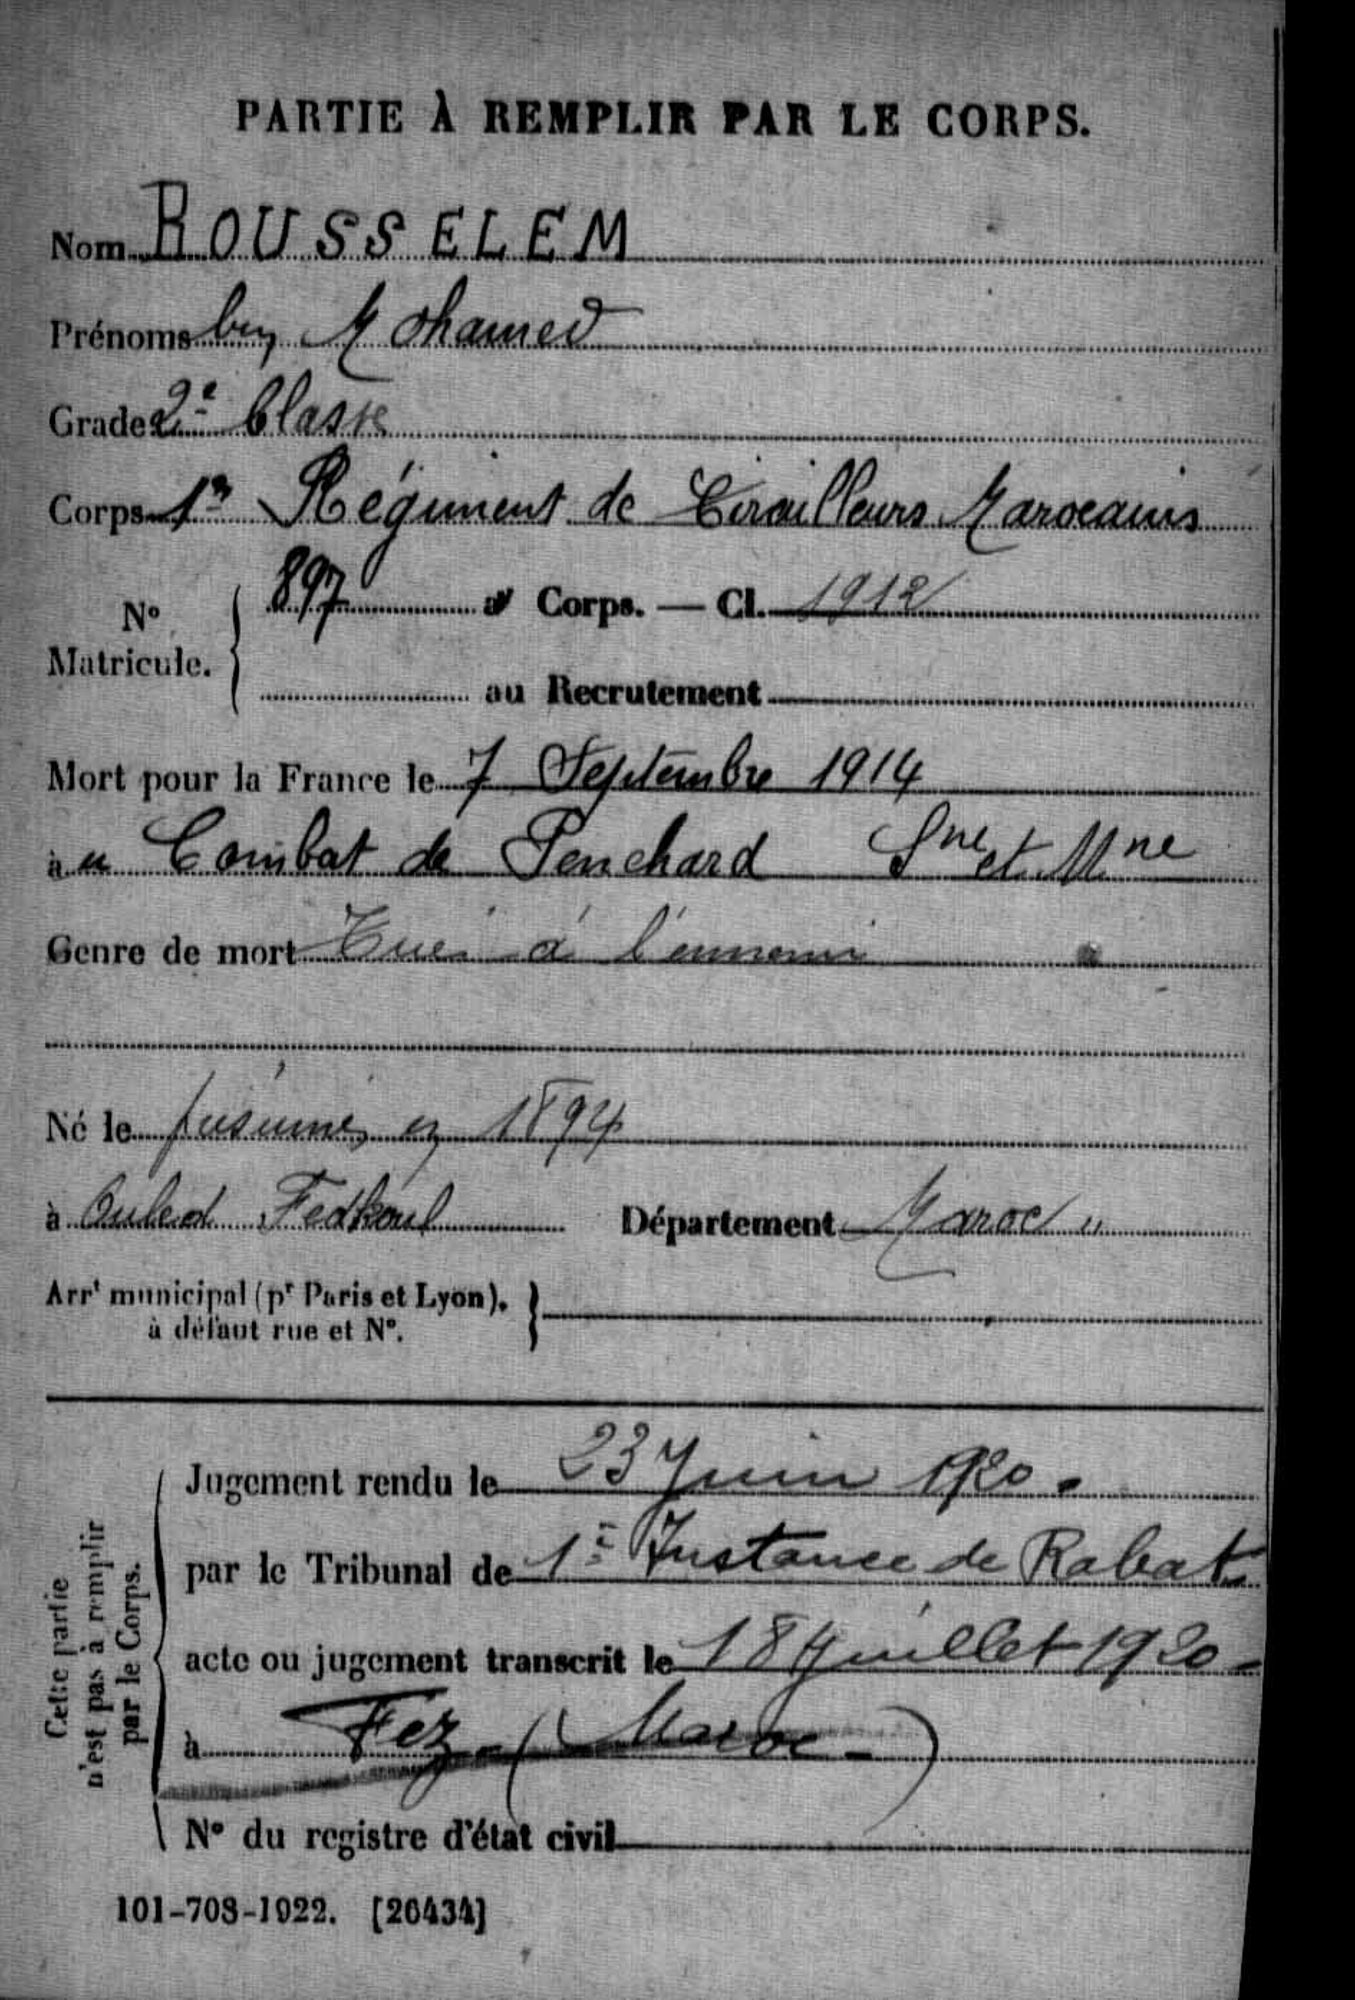 PARTIE À REMPLIR PAR LE CORPS.
Nom BOUSSELEM
Prénoms ben Mohamed
Grade 2e Classe
Corps 1er Régiment de Tirailleurs Marocains
No Matricule. 897 au Corps. — Cl. 1912
au Recrutement
Mort pour la France le 7 Septembre 1914
à u Combat de Penchard Sne et Mne
Genre de mort Tué à l'ennemi
Né le présumé en 1894
à Ouled Département Maroc "
Arrt municipal (pr Paris et Lyon),
à défaut rue et No.
Cette partie n'est pas à remplir par le Corps.
Jugement rendu le 23 Juin 1920.
par le Tribunal de 1e Instance de Rabat
acte ou jugement transcrit le 18 Juillet 1920 -
à Fez - (Maroc -)
No du registre d'état civil
101-708-1922. [26434]